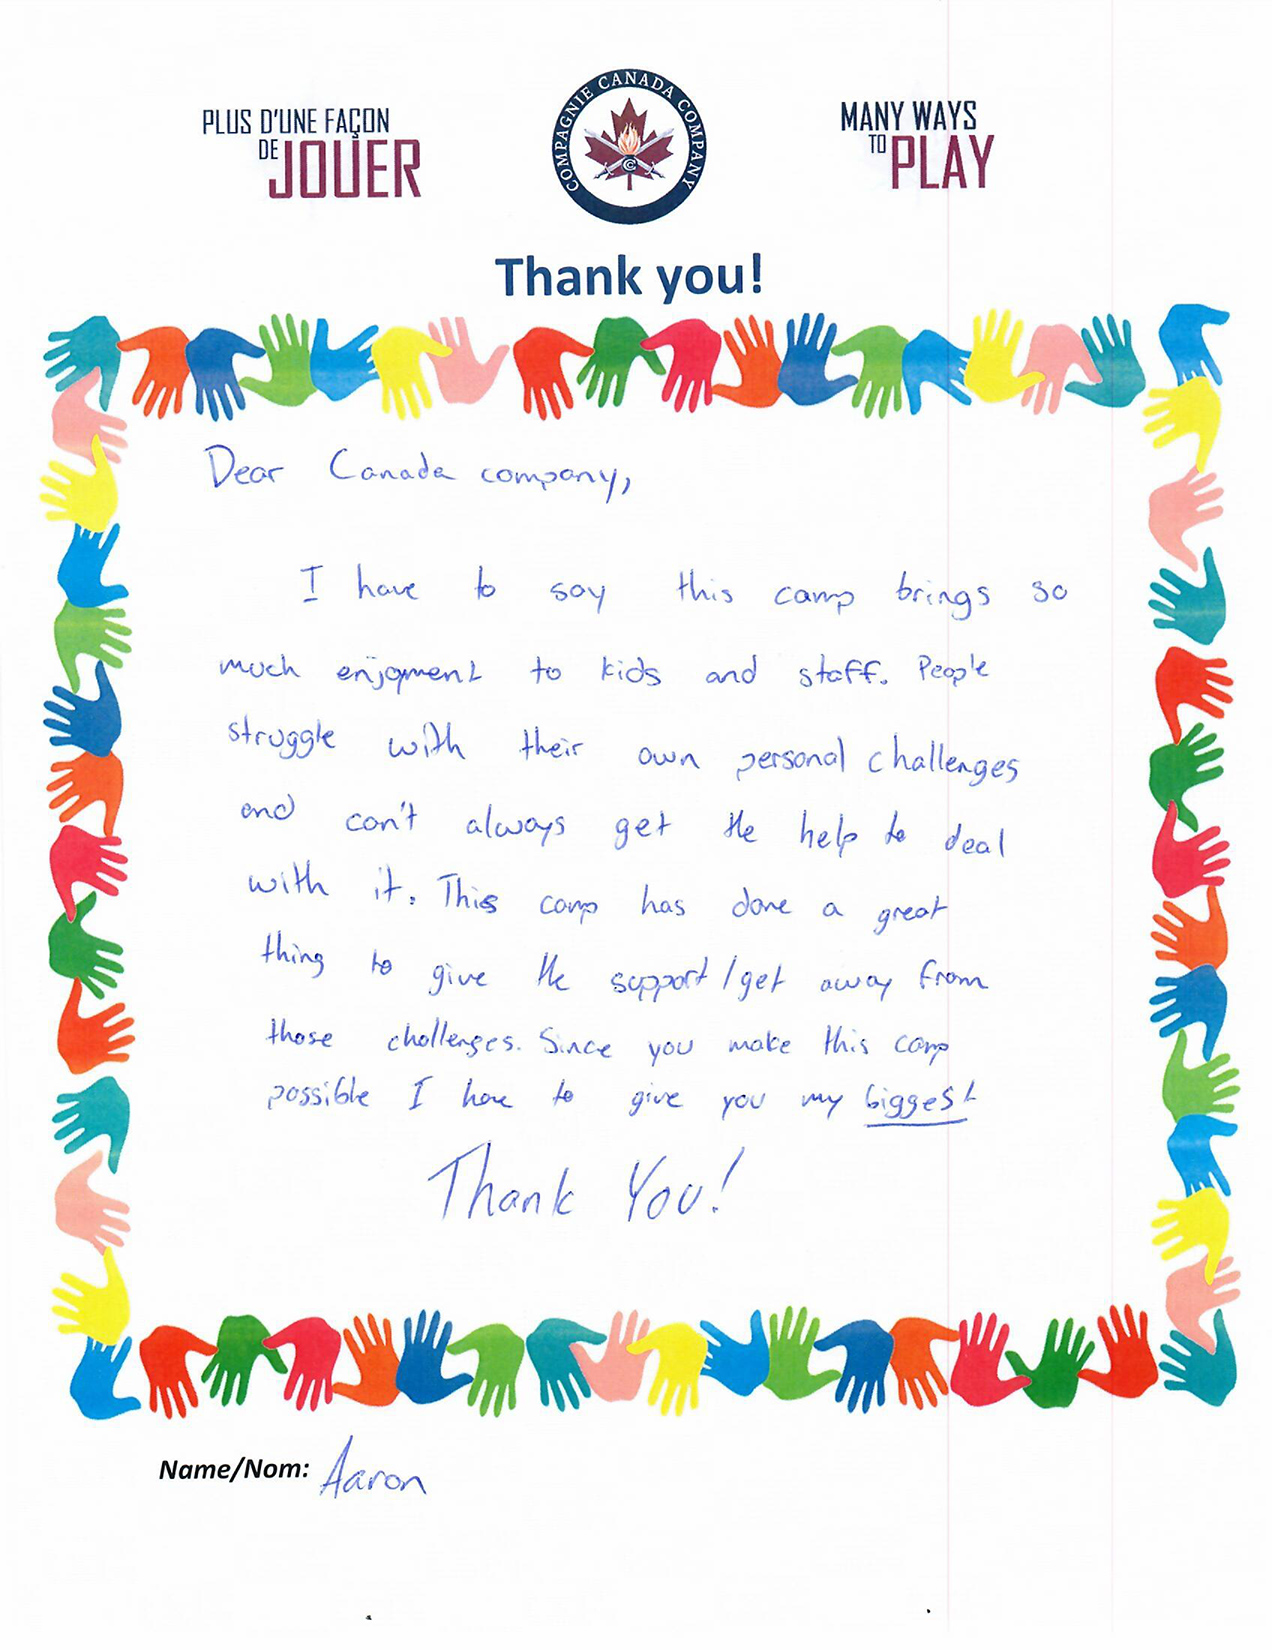 PLUS D'UNE FAÇON
DE JOUER
COMPAGNIE CANADA COMPANY
MANY WAYS
TO PLAY
Thank you!
Dear Canada company,
I have to say this camp brings so
much enjoyment to kids and staff. People
struggle with their own personal challenges
and can't always get the help to deal
with it. This camp has done a great
thing to give the support/get away from
those challenges. Since you make this camp
possible I have to give you my biggest
Thank You!
Name/Nom: Aaron